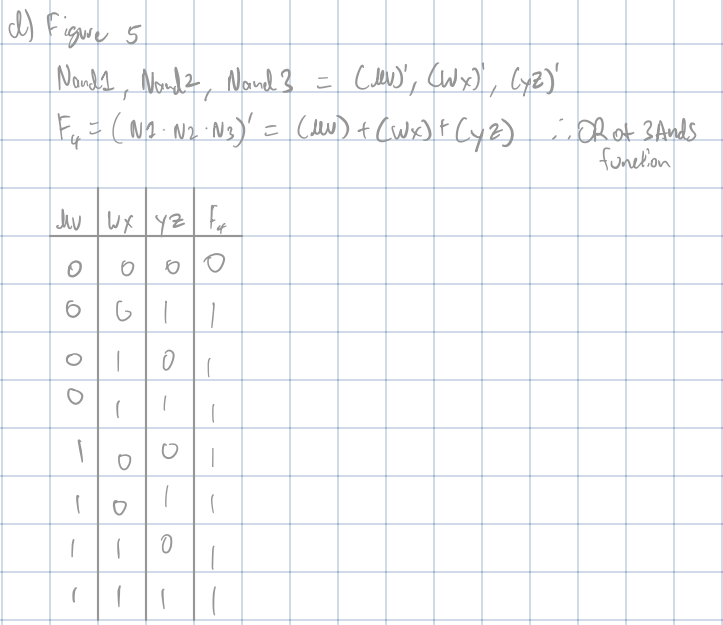 d) Figure 5
Nand1, Nand2, Nand3 = (uv)', (wx)', (yz)'
F₄ = (N1 · N2 · N3)' = (uv) + (wx) + (yz) ∴ OR of 3 Ands
function
uv wx yz F₄
0 0 0 0
0 0 1 1
0 1 0 1
0 1 1 1
1 0 0 1
1 0 1 1
1 1 0 1
1 1 1 1